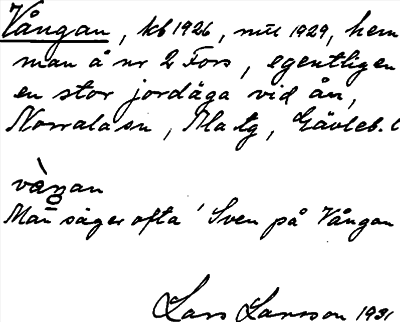 Vången, kb 1926, mtl 1929, hem
man å nr 2 Fors, egentligen
en stor jordäga vid ån,
Norrala sn, Ma tg, Gävleb. l
Man säger ofta 'Sven på Vången
Lars Larsson 1931